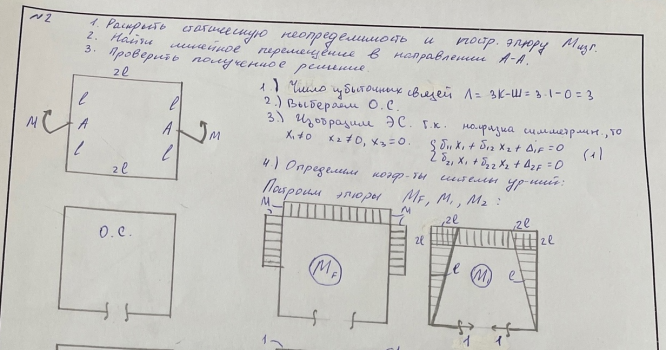 №2
1. Раскрыть статическую неопределимость и постр. эпюру Mизг.
2. Найти линейное перемещение в направлении А-А.
3. Проверить полученное решение.
2l
l
l
M
A
A
M
l
l
2l
1.) Число избыточных связей Л = 3К-Ш = 3·1-0 = 3
2.) Выбераем О.С.
3.) Изобразим ЭС. т.к. нагрузка симметричн., то
X₁≠0 X₂≠0, X₃=0.
δ₁₁X₁ + δ₁₂X₂ + Δ₁F = 0
δ₂₁X₁ + δ₂₂X₂ + Δ₂F = 0
(1)
4) Определим коэф-ты системы ур-ний:
Построим эпюры MF, M₁, M₂:
О.С.
M
M
MF
2l
2l
2l
2l
l
l
M₁
1
1
1